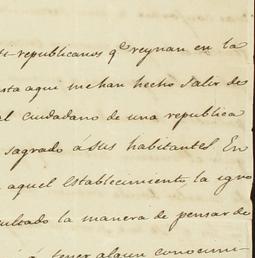 ti-republicanos qe reynan en la
sta aqui me han hecho salir de
al ciudadano de una republica
sagrado á sus habitantes En
aquel establecimiento, la igno
cultado la manera de pensar de
á tener algun conocimi-